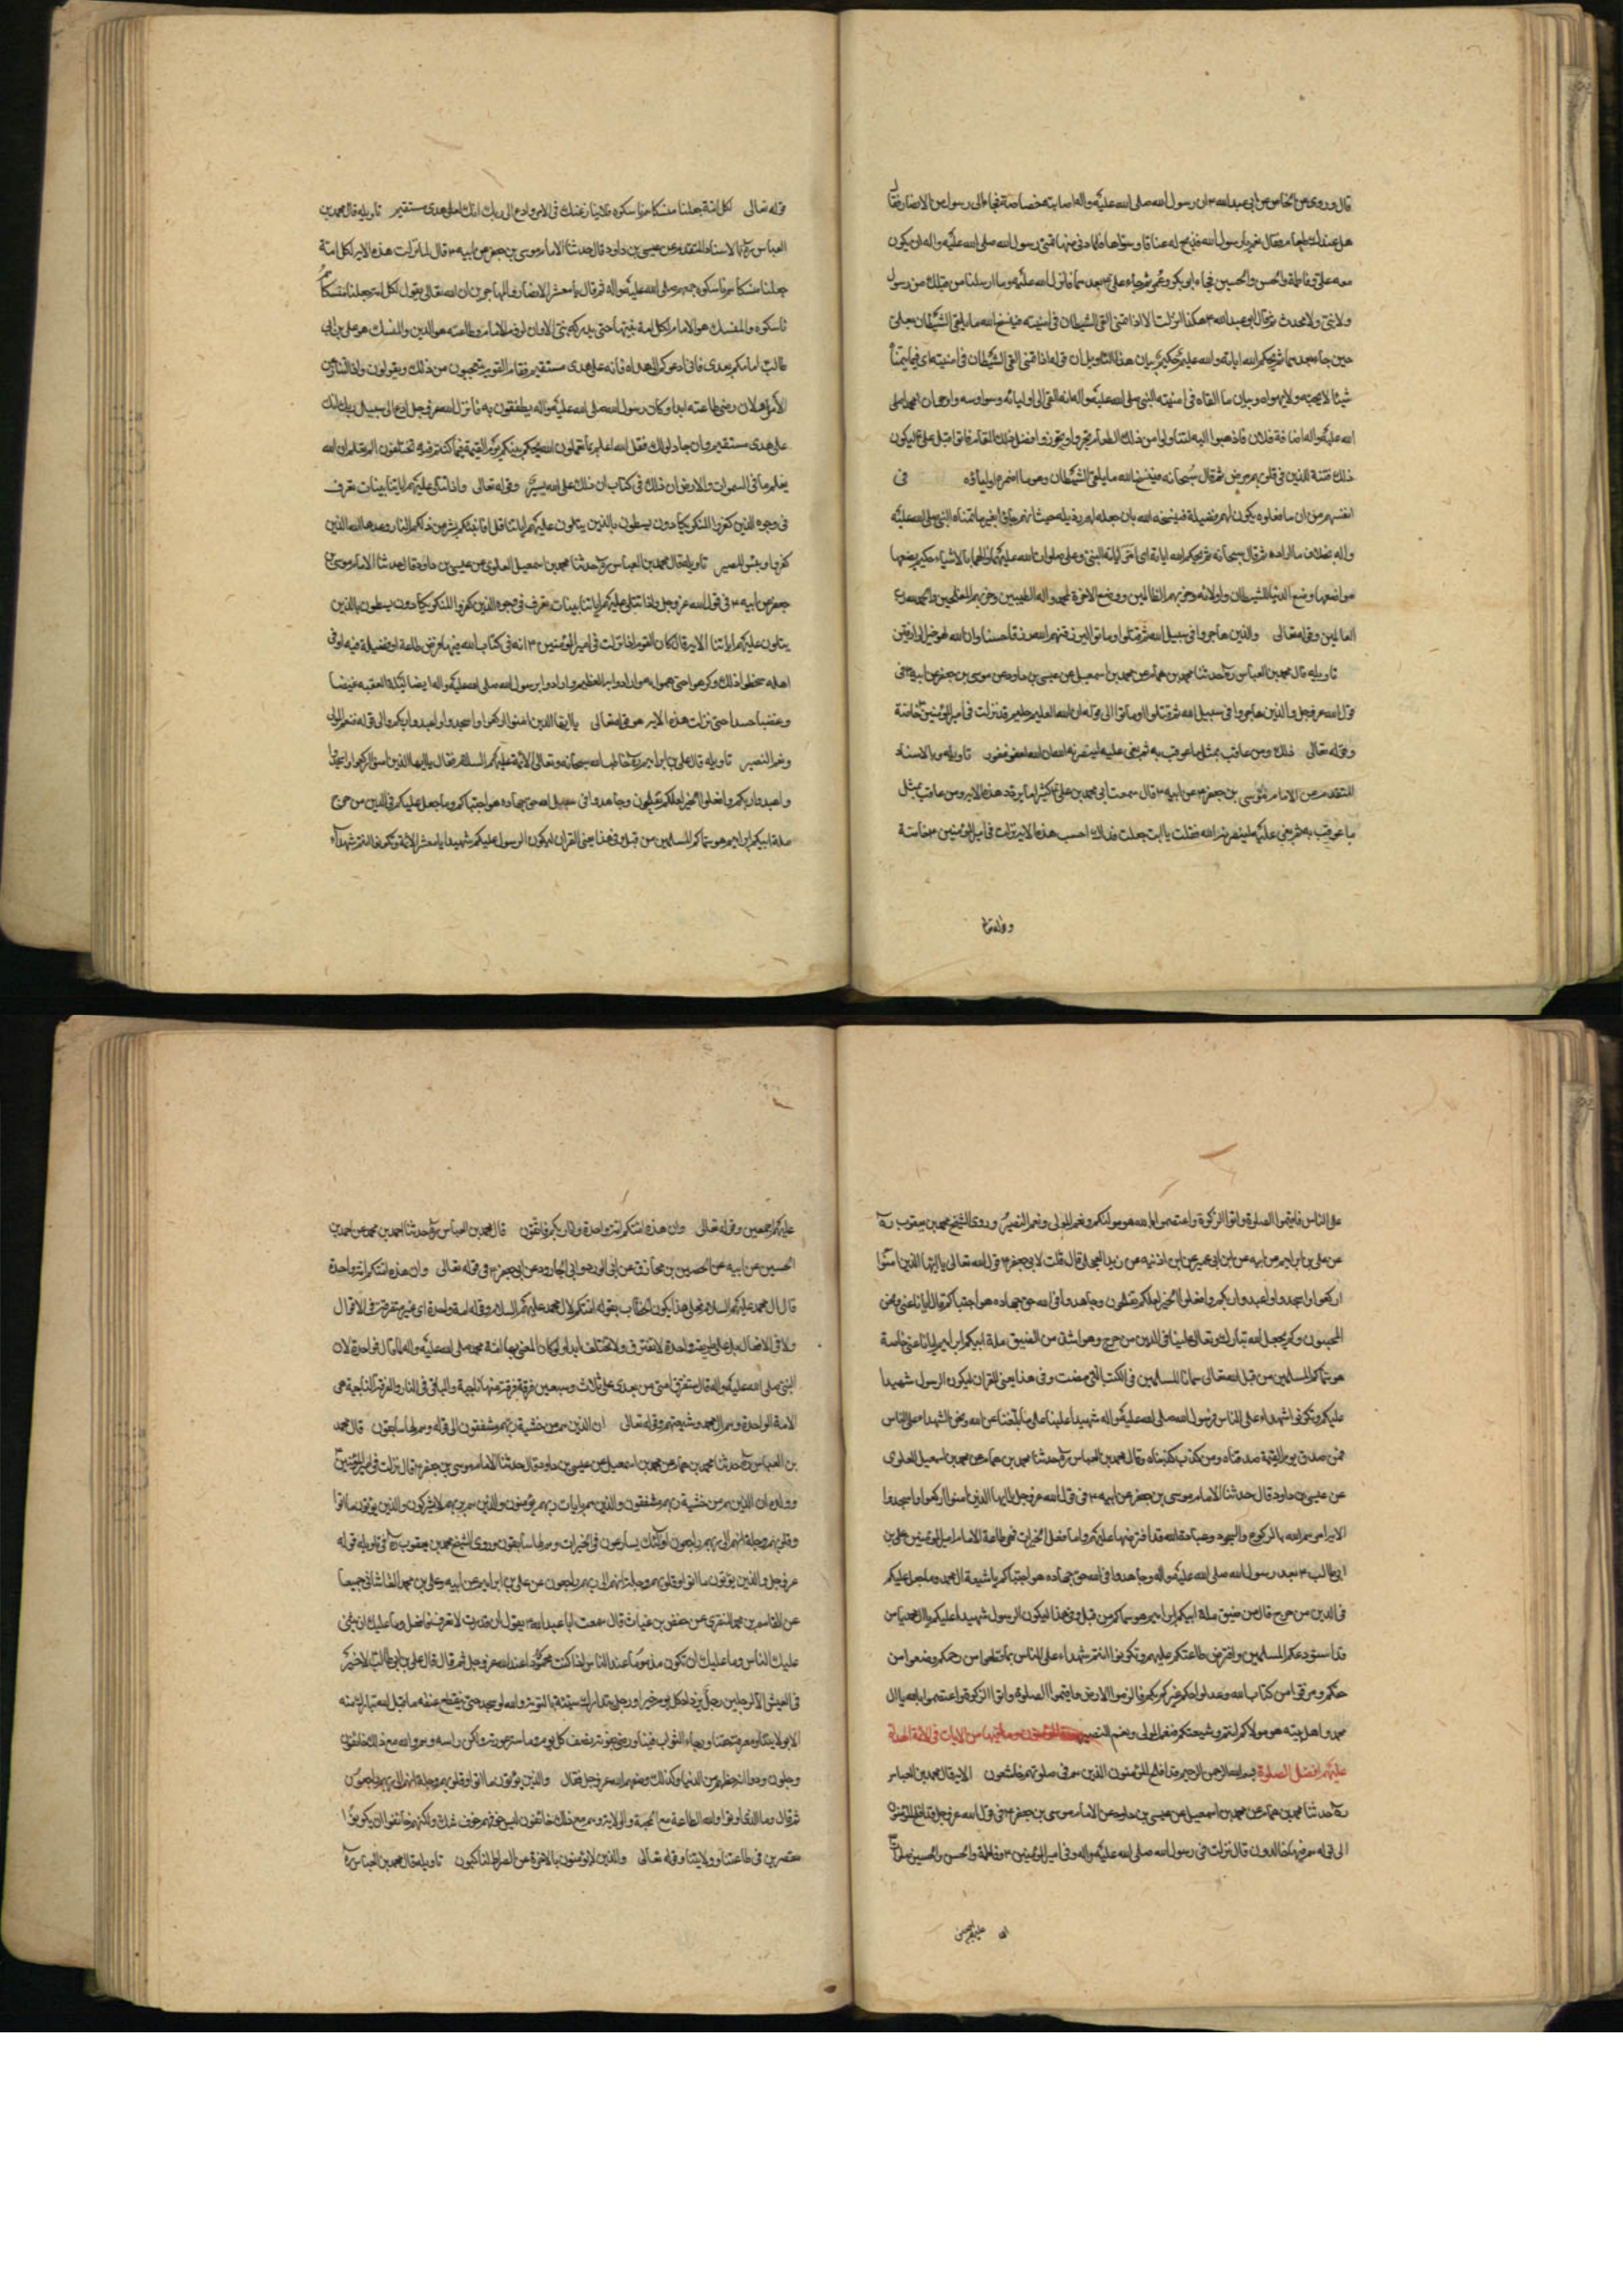 قال وروى عن الخاص عن ابى عبدالله ٣ ان رسول الله صلى الله عليه واله اصابته خصاصة فجاء الى رسول من الانصار فقال
هل عندك طعام فقال نعم يا رسول الله فذبح له عناقا وشواها فلما دنى منها تمنى رسول الله صلى الله عليه واله ان يكون
معه على وفاطمة والحسن والحسين فجاء ابى بكر وعمر ثم جاء على ٣ بعدهما فانزل الله عليه وما ارسلنا من قبلك من رسول
ولا نبى ولا محدث ثم قال ابو عبدالله ٣ هكذا انزلت الا اذا تمنى القى الشيطان فى امنيته فينسخ الله ما يلقى الشيطان بعلى
حين جاء بعدهما ثم يحكم الله اياته والله عليم حكيم بيان هذا التاويل ان قوله اذا تمنى القى الشيطان فى امنيته اى فيما يتمناه
شيئا لا يحبه ولا يهواه وبيان ما القاه فى امنيته النبى صلى الله عليه واله انه القى الى اوليائه وسواوسه وارجوان محمدا صلى
الله عليه واله اضافة فلان فاذهبوا اليه لتناولوا من ذلك الطعام
ذلك فتنة الذين فى قلوبهم مرض ثم قال سبحانه فينسخ الله ما يلقى الشيطان وهو ما اضمره اولياؤه فى
انفسهم من ان ما فعلوه يكون لهم فضيلة فينسخه الله بان جعله لهم رذيلة حيث انهم جاؤا بغير ما تمناه النبى صلى الله عليه
واله بخلاف ما اراده ثم قال سبحانه ثم يحكم الله اياته اى اياته النبى وعلى صلوات الله عليهما والله عليم بالاشياء حكيم يضعها
مواضعها وضع الدنيا للشيطان واوليائه وحزبهم الظالمين ووضع الاخرة لمحمد واله الطيبين وحزبهم المفلحين والحمدلله رب
العالمين وقوله تعالى والذين هاجروا فى سبيل الله ثم قتلوا او ماتوا ليرزقنهم الله رزقا حسنا وان الله لهو خير الرازقين
تاويله قال محمد بن العباس ره حدثنا محمد بن همام عن محمد بن اسمعيل عن عيسى بن داود عن موسى بن جعفر عن ابيه ٣ فى
قول الله عز وجل والذين هاجروا فى سبيل الله ثم قتلوا او ماتوا الى قوله ان الله لعليم حليم قد نزلت فى امير المؤمنين خاصة
وقوله تعالى ذلك ومن عاقب بمثل ما عوقب به ثم بغى عليه لينصرنه الله ان الله لعفو غفور تاويله وبالاسناد
المتقدم عن الامام موسى بن جعفر ٣ عن ابيه ٣ قال سمعت ابى محمد بن على ٣ كثيرا ما يردد هذه الاية ومن عاقب بمثل
ما عوقب به ثم بغى عليه لينصرنه الله فقلت يا ابت جعلت فداك احسب هذه الاية نزلت فى امير المؤمنين ٣ خاصة
وقوله تعالى
قوله تعالى لكل امة جعلنا منسكا هم ناسكوه فلا ينازعنك فى الامر وادع الى ربك انك لعلى هدى مستقيم تاويله قال محمد بن
العباس ره بالاسناد المتقدم عن عيسى بن داود قال حدثنا الامام موسى بن جعفر عن ابيه ٣ قال لما نزلت هذه الاية لكل امة
جعلنا منسكا هم ناسكوه جمعهم رسول صلى الله عليه واله ثم قال يا معشر الانصار والمهاجرين ان الله تعالى يقول لكل امة جعلنا منسكا هم
ناسكوه والمنسك هو الامام لكل امة نبيها حتى يدركه نبى الا وان لزوم الامام وطاعته هو الدين والمنسك هو على بن ابى
طالب امامكم بعدى فانى ادعوكم الى هداه فانه على هدى مستقيم فقام القوم يتعجبون من ذلك ويقولون
الامر لان رضى طاعته ابدا وكان رسول الله صلى الله عليه واله فانزل الله عز وجل ادع الى سبيل ربك انك
على هدى مستقيم وان جادلوك فقل الله اعلم بما تعملون الله يحكم بينكم يوم القيمة فيما كنتم فيه تختلفون الم تعلم ان الله
يعلم ما فى السموات والارض ان ذلك فى كتاب ان ذلك على الله يسير وقوله تعالى واذا تتلى عليهم اياتنا بينات تعرف
فى وجوه الذين كفروا المنكر يكادون يسطون بالذين يتلون عليهم اياتنا قل افانبئكم بشر من ذلكم النار وعدها الله الذين
كفروا وبئس المصير تاويله قال محمد بن العباس ره حدثنا محمد بن اسمعيل العلوى عن عيسى بن داود قال حدثنا الامام موسى بن
جعفر عن ابيه ٣ فى قول الله عز وجل واذا تتلى عليهم اياتنا بينات تعرف فى وجوه الذين كفروا المنكر يكادون يسطون بالذين
يتلون عليهم اياتنا الاية قال كان القوم اذا نزلت فى امير المؤمنين ٣ اية فى كتاب الله فيها فرض طاعة او فضيلة فيه او فى
اهله سخطوا ذلك وكرهوا حتى هموا به وارادوا به العظيم وارادوا برسول الله صلى الله عليه واله ايضا ليلة العقبة غيضا
وغضبا وحسدا حتى نزلت هذه الاية وقوله تعالى يا ايها الذين امنوا اركعوا واسجدوا واعبدوا ربكم الى قوله فنعم المولى
ونعم النصير تاويله قال على بن ابراهيم ره خاطب الله سبحانه وتعالى الائمة عليهم السلام فقال يا ايها الذين امنوا اركعوا واسجدوا
واعبدوا ربكم وافعلوا الخير لعلكم تفلحون وجاهدوا فى سبيل الله حق جهاده هو اجتبيكم وما جعل عليكم فى الدين من حرج
ملة ابيكم ابراهيم هو سماكم المسلمين من قبل وفى هذا يعنى القران ليكون الرسول عليكم شهيدا يا معشر الائمة وتكونوا انتم شهداء
على الناس فاقيموا الصلوة واتوا الزكوة واعتصموا بالله هو موليكم فنعم المولى ونعم النصير وروى الشيخ محمد بن يعقوب ره
عن على بن ابراهيم عن ابيه عن ابن ابى عمير عن ابن اذينه عن بريد العجلى قال قلت لابى جعفر ٣ قول الله تعالى يا ايها الذين امنوا
اركعوا واسجدوا واعبدوا ربكم وافعلوا الخير لعلكم تفلحون وجاهدوا فى الله حق جهاده هو اجتبيكم قال ايانا عنى ونحن
المجتبون ولم يجعل الله تبارك وتعالى علينا فى الدين من حرج وهو اشد من الضيق ملة ابيكم ابراهيم ايانا عنى خاصة
هو سماكم المسلمين من قبل الله تعالى سمانا المسلمين فى الكتب التى مضت وفى هذا يعنى القران ليكون الرسول شهيدا
عليكم وتكونوا شهداء على الناس فرسول الله صلى الله عليه واله شهيدا علينا على ما بلغنا عن الله ونحن الشهداء على الناس
فمن صدق يوم القيمة صدقناه ومن كذب كذبناه وقال محمد بن العباس ره حدثنا محمد بن همام عن محمد بن اسمعيل العلوى
عن عيسى بن داود قال حدثنا الامام موسى بن جعفر عن ابيه ٣ فى قول الله عز وجل يا ايها الذين امنوا اركعوا واسجدوا
الاية امرهم الله بالركوع والسجود وعبادة الله قد افترضها عليكم واما فعل الخيرات فهو طاعة الامام امير المؤمنين على بن
ابى طالب ٣ بعد رسول الله صلى الله عليه واله وجاهدوا فى الله حق جهاده هو اجتباكم يا شيعة ال محمد وما جعل عليكم
فى الدين من حرج قال من ضيق ملة ابيكم ابراهيم هو سماكم من قبل وفى هذا ليكون الرسول شهيدا عليكم يا ال محمد يا من
قد استودعكم المسلمين وافترض طاعتكم عليهم وتكونوا انتم شهداء على الناس بما قطعوا من رحمكم وضيعوا من
حقكم ومزقوا من كتاب الله وعدلوا حكم غيركم بكم فالزموا الارض فاقيموا الصلوة واتوا الزكوة واعتصموا بالله يا ال
محمد واهل بيته هو موليكم انتم وشيعتكم فنعم المولى ونعم النصير سورة المؤمنون وما فيها من الايات فى الائمة الهداة
عليهم افضل الصلوة بسم الله الرحمن الرحيم قد افلح المؤمنون الذين هم فى صلوتهم خاشعون الاية قال محمد بن العباس
ره حدثنا محمد بن همام عن محمد بن اسمعيل عن عيسى بن داود عن الامام موسى بن جعفر ٣ فى قول الله عز وجل قد افلح المؤمنون
الى قوله هم فيها خالدون قال نزلت فى رسول الله صلى الله عليه واله وفى امير المؤمنين ٣ وفاطمة والحسن والحسين صلوات
الله عليهم اجمعين
عليهم اجمعين وقوله تعالى وان هذه امتكم امة واحدة وانا ربكم فاتقون قال محمد بن العباس ره حدثنا احمد بن محمد عن احمد بن
الحسين عن ابيه عن الحصين بن مخارق عن ابى الورد وابى الجارود عن ابى جعفر ٣ فى قوله تعالى وان هذه امتكم امة واحدة
قال ال محمد عليهم السلام فعلى هذا يكون الخطاب بقوله امتكم لال محمد عليهم السلام وقوله امة واحدة اى غير متفرقة فى الاقوال
ولا فى الافعال بل على طريقة واحدة لا تفترق ولا تختلف ابدا ولو كان المعنى بها امة محمد صلى الله عليه واله لما قال واحدة لان
النبى صلى الله عليه واله قال ستفرق امتى من بعدى على ثلاث وسبعين فرقة فرقة منها ناجية والباقى فى النار والفرقة الناجية هى
الامة الواحدة وهم ال محمد وشيعتهم وقوله تعالى ان الذين هم من خشية ربهم مشفقون الى قوله وهم لها سابقون قال محمد
بن العباس ره حدثنا محمد بن همام عن محمد بن اسمعيل عن عيسى بن داود قال حدثنا الامام موسى بن جعفر ٣ قال نزلت فى امير المؤمنين
وولده ان الذين هم من خشية ربهم مشفقون والذين هم بايات ربهم يؤمنون والذين هم بربهم لا يشركون والذين يؤتون ما اتوا
وقلوبهم وجلة انهم الى ربهم راجعون اولئك يسارعون فى الخيرات وهم لها سابقون وروى الشيخ محمد بن يعقوب ره فى تاويله قوله
عز وجل والذين يؤتون ما اتوا وقلوبهم وجلة انهم الى ربهم راجعون عن على بن ابراهيم عن ابيه وعلى بن محمد القاشانى جميعا
عن القاسم بن محمد المنقرى عن حفص بن غياث قال سمعت ابا عبدالله يقول ان قدرت لا تعرف فافعل وما عليك ان يثنى
عليك الناس وما عليك ان تكون مذموما عند الناس اذا كنت محمودا عند الله عز وجل ثم قال قال على بن ابى طالب لا خير
فى العيش الا لرجلين رجل يزداد كل يوم خيرا ورجل يتدارك سيئته بالتوبة والله لو سجد حتى ينقطع عنقه ما قبل الله تبارك منه
الا بولايتنا ومعرفة حقنا ورجاء الثواب فينا ورضى بقوته نصف كل يوم وما ستر عورته وما اكن راسه وهم والله مع ذلك خائفون
وجلون ودوا انه حظهم من الدنيا وكذلك وصفهم الله عز وجل فقال والذين يؤتون ما اتوا وقلوبهم وجلة انهم الى ربهم راجعون
ثم قال وما الذى اوتوا والله الطاعة مع المحبة والولاية وهم مع ذلك خائفون ليس خوفهم خوف شك ولكنهم خافوا ان يكونوا
مقصرين فى طاعتنا وولايتنا وقوله تعالى والذين لا يؤمنون بالاخرة عن الصراط لناكبون تاويله قال محمد بن العباس ره